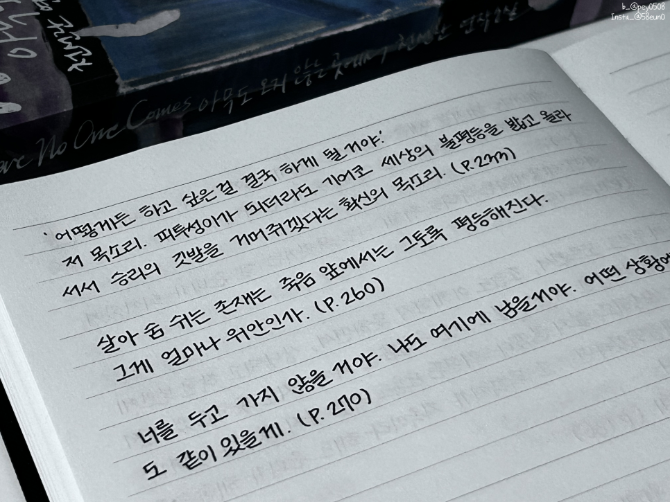 b_@pey0508
Insta_@58eum0
Where No One Comes 아무도 오지 않는 곳에서
'어떻게든 하고 싶은걸 결국 하게 될거야.'
저 목소리. 피투성이가 되더라도 기어코 세상의 불평등을 밟고 올라
서서 승리의 깃발을 거머쥐겠다는 확신의 목소리. (P.233)
살아 숨 쉬는 존재는 죽음 앞에서는 그토록 평등해진다.
그게 얼마나 위안인가. (P.260)
너를 두고 가지 않을 거야. 나도 여기에 남을거야. 어떤 상황에
도 같이 있을게. (P.270)